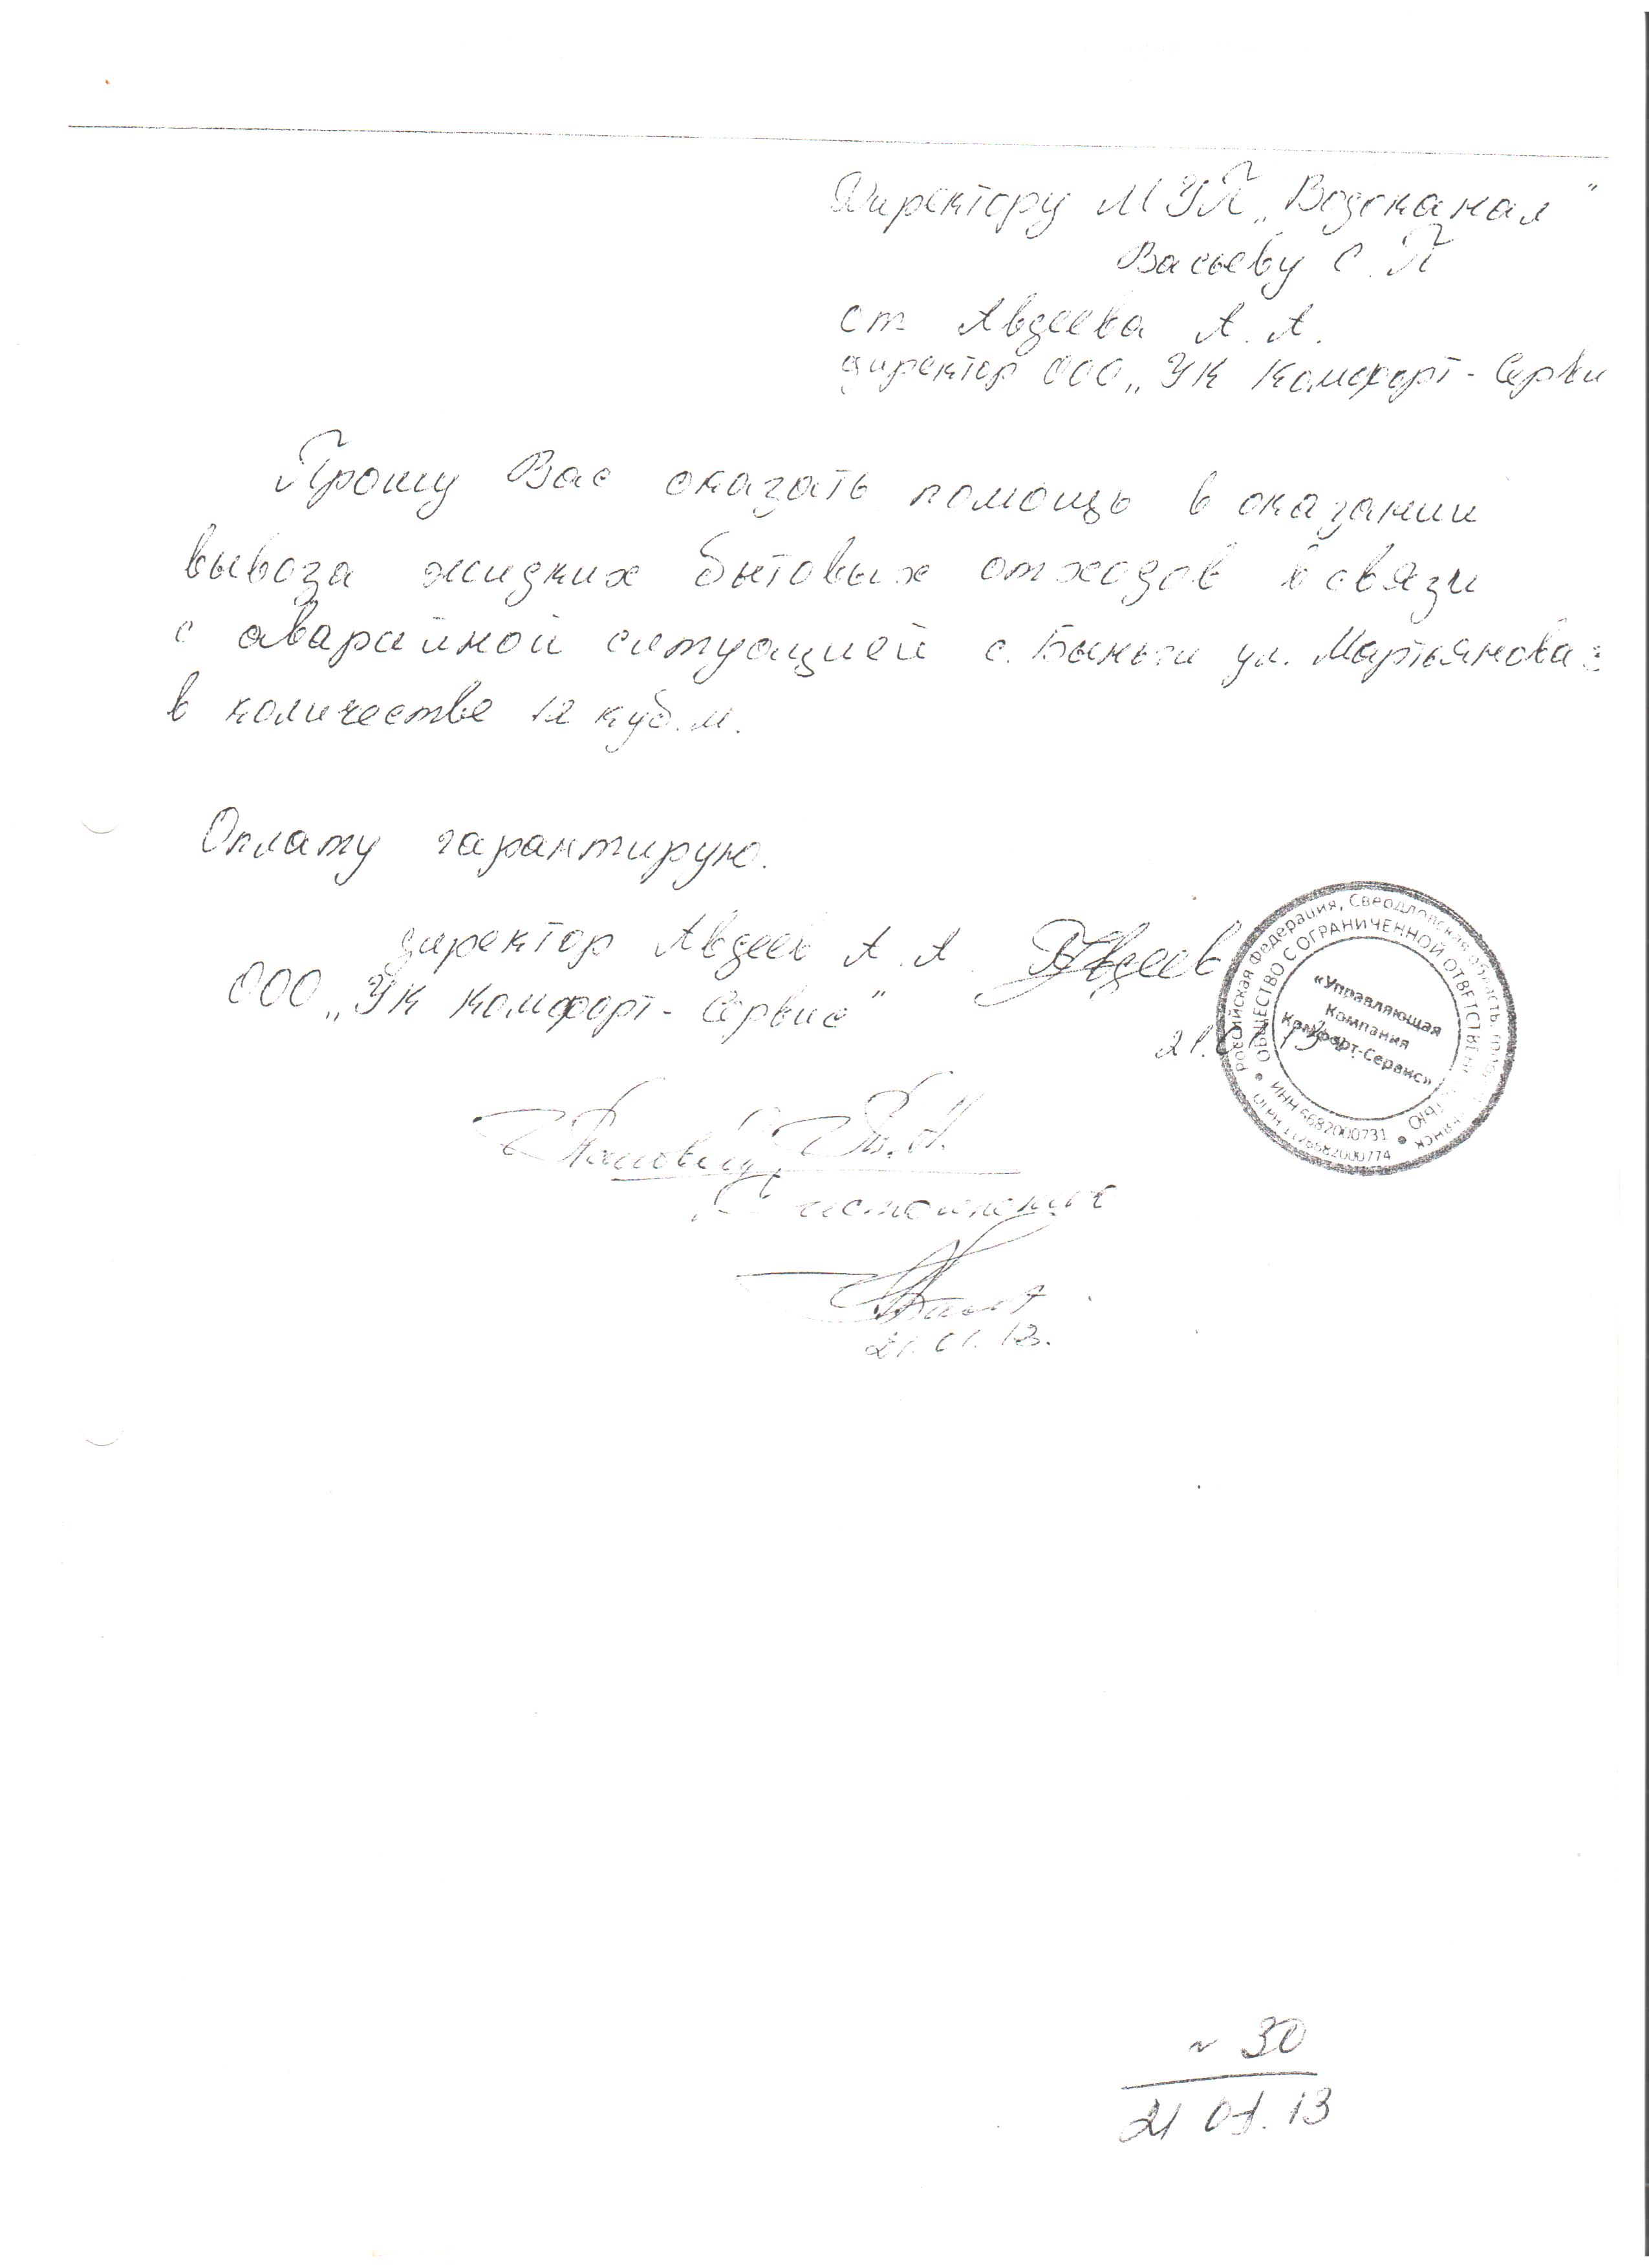 Директору МУП „Водоканал"
Васьеву С. П
от Авдеева А. А.
директор ООО „УК Комфорт-Серви
Прошу Вас оказать помощь в оказании
вывоза жидких бытовых отходов в связи
с аварийной ситуацией с. Быньги ул. Мартьянова
в количестве 12 куб. м.
Оплату гарантирую.
директор Авдеев А. А. Авдеев
ООО „УК Комфорт-Сервис"
21.01.13
Российская Федерация, Свердловская область, город
ОБЩЕСТВО С ОГРАНИЧЕННОЙ ОТВЕТСТВЕН ТЬЮ
«Управляющая
Компания
Комфорт-Сервис»
ИНН 6682000731
ОГРН 1126682000774
21.01.13.
N 30
21 01.13